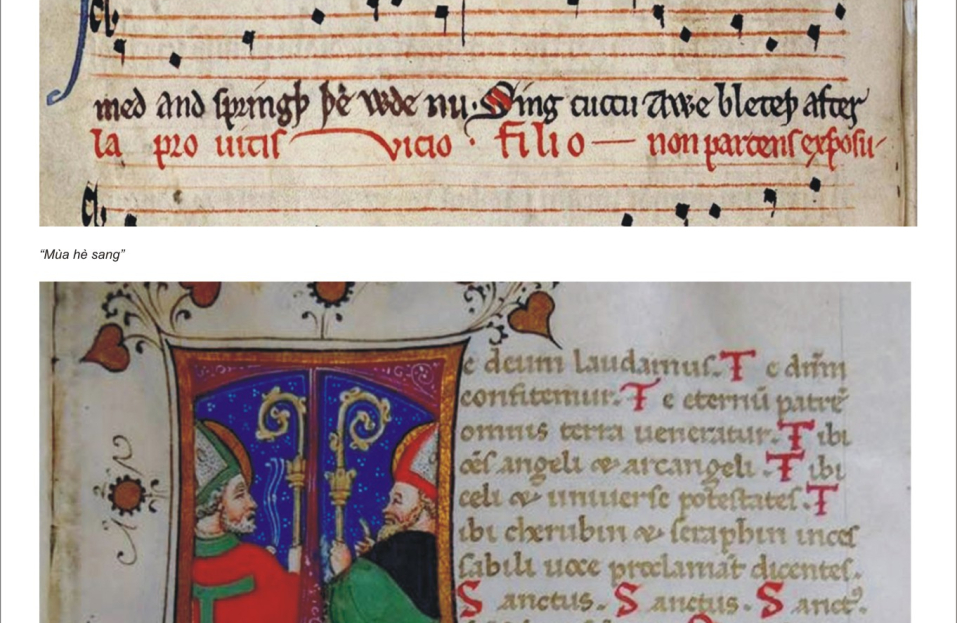 med and springþ þe wde nu. Sing cuccu Awe bleteþ after
la pro uitis vicio. filio non parcens exposu-
“Mùa hè sang”
e deum laudamus. T e dnm
confitemur. T e eternū patrē
omnis terra ueneratur. T ibi
oēs angeli & arcangeli. T ibi
celi & uniuerse potestates. T
ibi cherubin & seraphin inces
sabili uoce proclamāt dicentes.
S anctus. S anctus. S anct9.